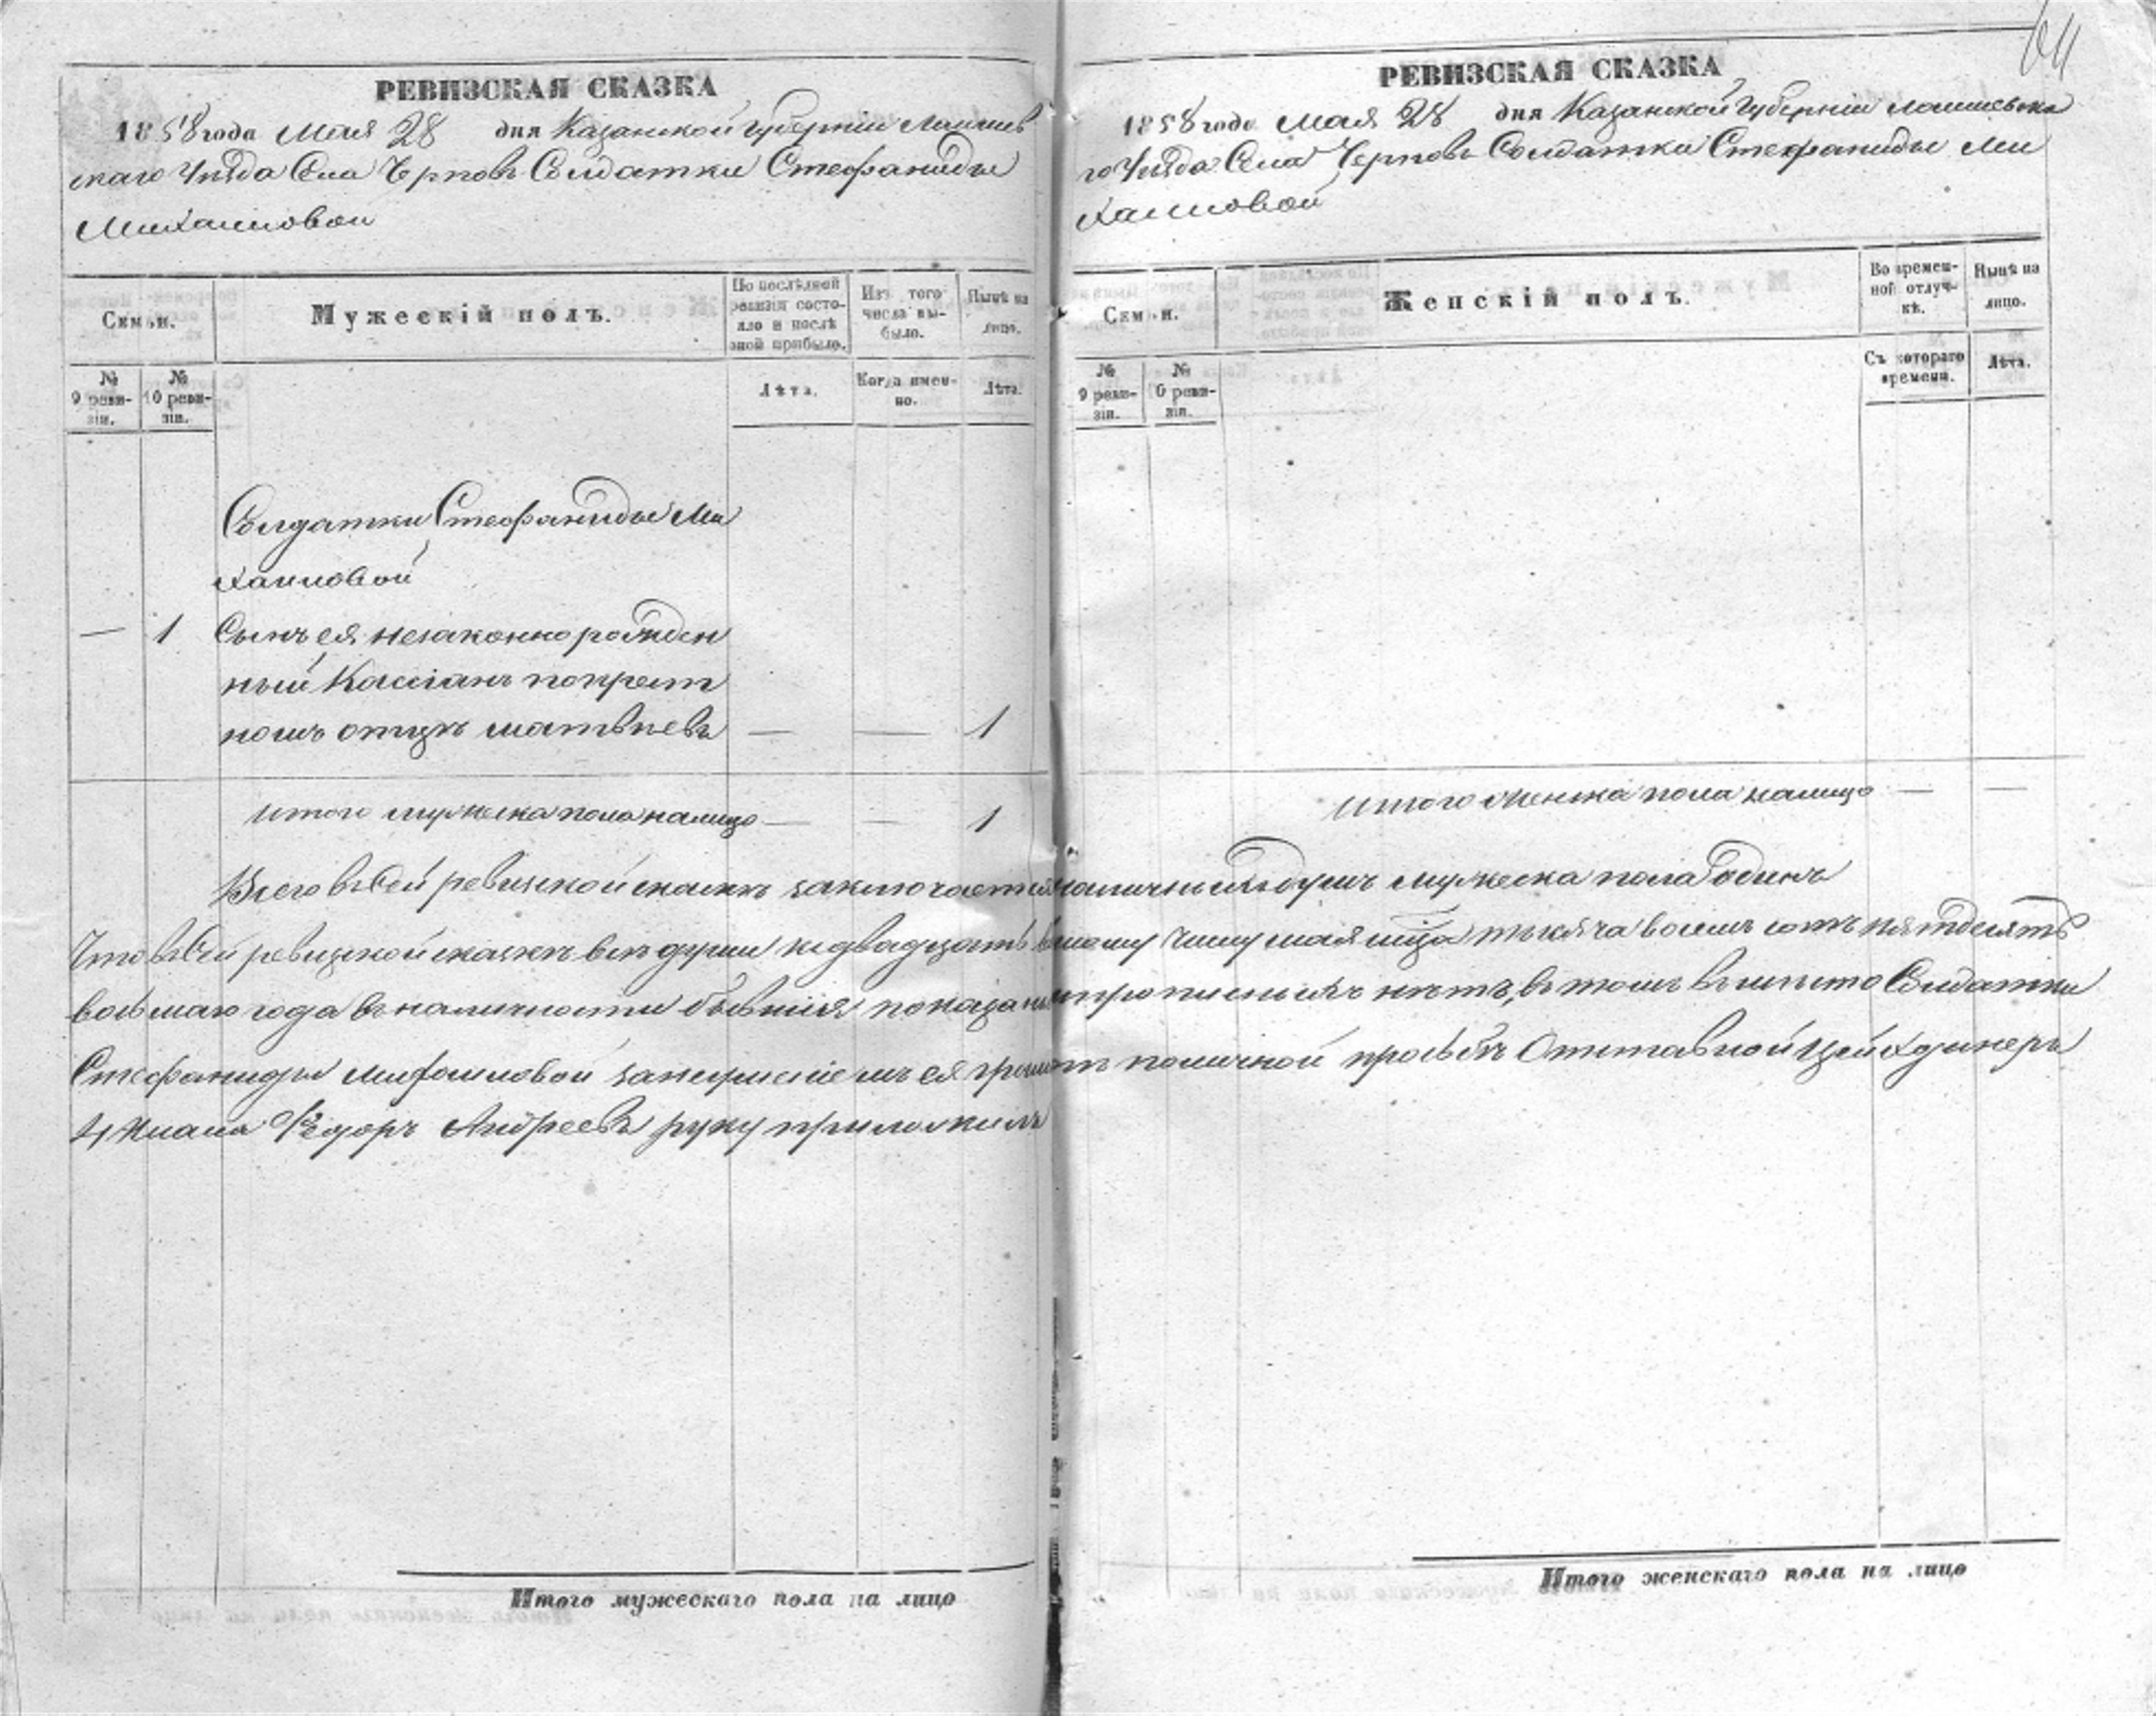 64
РЕВИЗСКАЯ СКАЗКА
1858 года Мая 28 дня Казанской Губерніи Лаишев
скаго Уѣзда Села Чернов Солдатки Стефаниды
Михаиловой
Семьи.
Мужескій полъ.
По послѣдней ревизіи состо-
яло и послѣ
оной прибыло.
Изъ того
числа вы-
было.
Нынѣ на
лицо.
№
9 реви-
зіи.
№
10 реви-
зіи.
Лѣта.
Когда имен-
но.
Лѣта.
Солдатки Стефаниды Ми
хаиловой
— 1 Сынъ ея незаконно рожден
ный Кассіанъ по крест
номъ отцѣ Матвѣевъ — — 1
Итого мужеска пола налицо — — 1
РЕВИЗСКАЯ СКАЗКА
1858 года Мая 28 дня Казанской Губерніи Лаишевска
го Уѣзда Села Черновъ Солдатки Стефаниды Ми
хаиловой
Семьи.
Женскій полъ.
Во времен-
ной отлуч-
кѣ.
Нынѣ на
лицо.
№
9 реви-
зіи.
№
10 реви-
зіи.
Съ котораго
времени.
Лѣта.
Итого женска пола налицо — —
Всего в сей ревизской сказкѣ заключается наличныхъ душъ мужеска пола одинъ
Что в сей ревизской сказкѣ всѣ души к двадцать восьмому числу мая мца тысяча восемь сотъ пятдесятъ
восьмаго года в наличности бывшія показаны прописныхъ нѣтъ, в томъ вмѣсто Солдатки
Стефаниды Михаиловой за неумѣніемъ ея грамотѣ по личной просьбѣ Отставной Цейхдинеръ
4 Класа Ѳедоръ Андреевъ руку приложилъ
Итого мужескаго пола на лицо
Итого женскаго пола на лицо